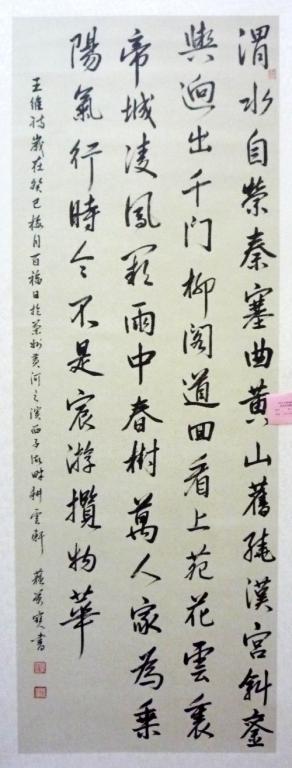 渭水自榮秦塞曲黄山舊繞漢宮斜鑾
輿迥出千门柳閣道回看上苑花雲裏
帝城凌鳳闕雨中春樹萬人家為乘
陽氣行時令不是宸游攬物華
王維詩歲在癸巳梅月百福日於州黄河之濱西子湖畔耕雲軒 書